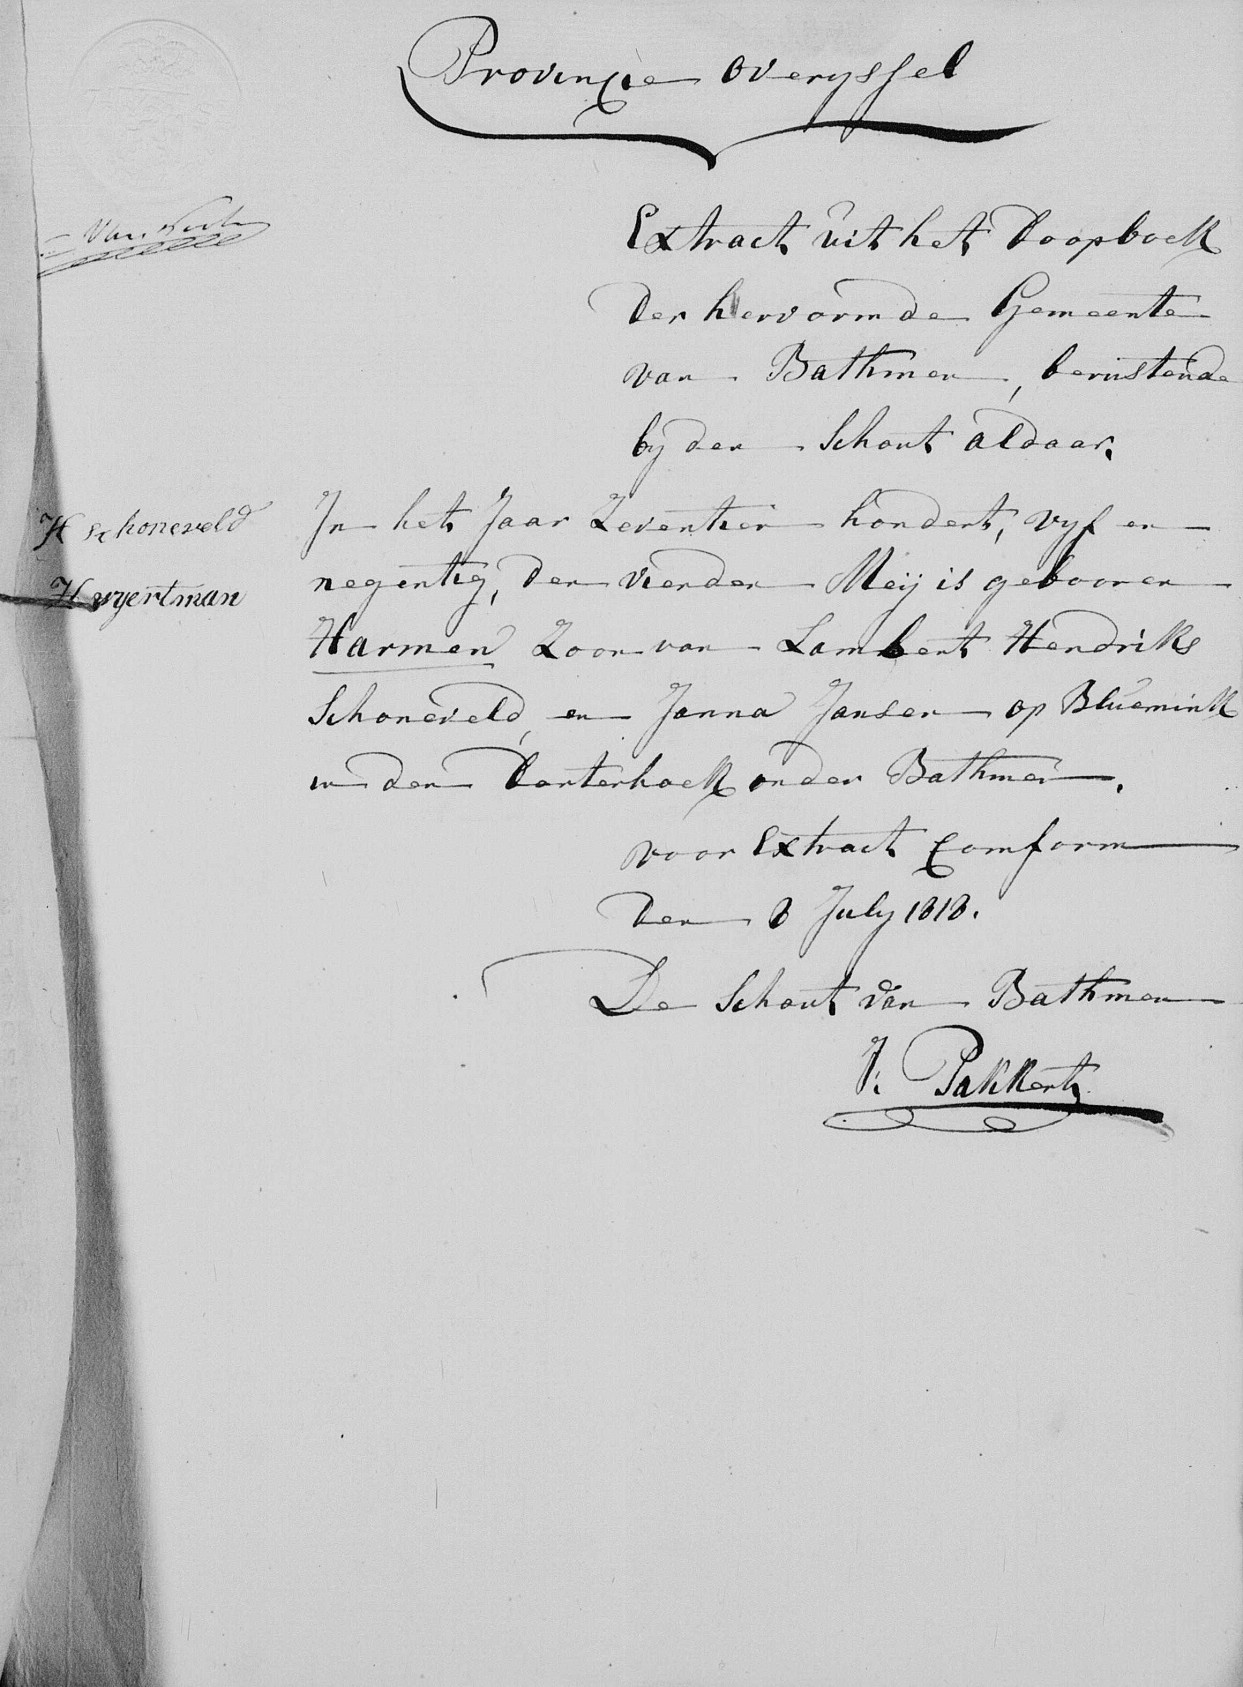 Provincie Overyssel
Extract uit het Doopboek
der hervormde Gemeente
van Bathmen, berustende
by den Schout aldaar.
H Schoneveld
H wyertman
In het Jaar Zeventien hondert, vyf en
negentig, den vierden Meij is gebooren
Harmen Zoon van Lambert Hendriks
Schoneveld, en Janna Jansen op Bluemink
in den Dorterhoek onder Bathmen.
voor Extract Comform
den 8 July 1818.
De Schout van Bathmen
J: Pakkert